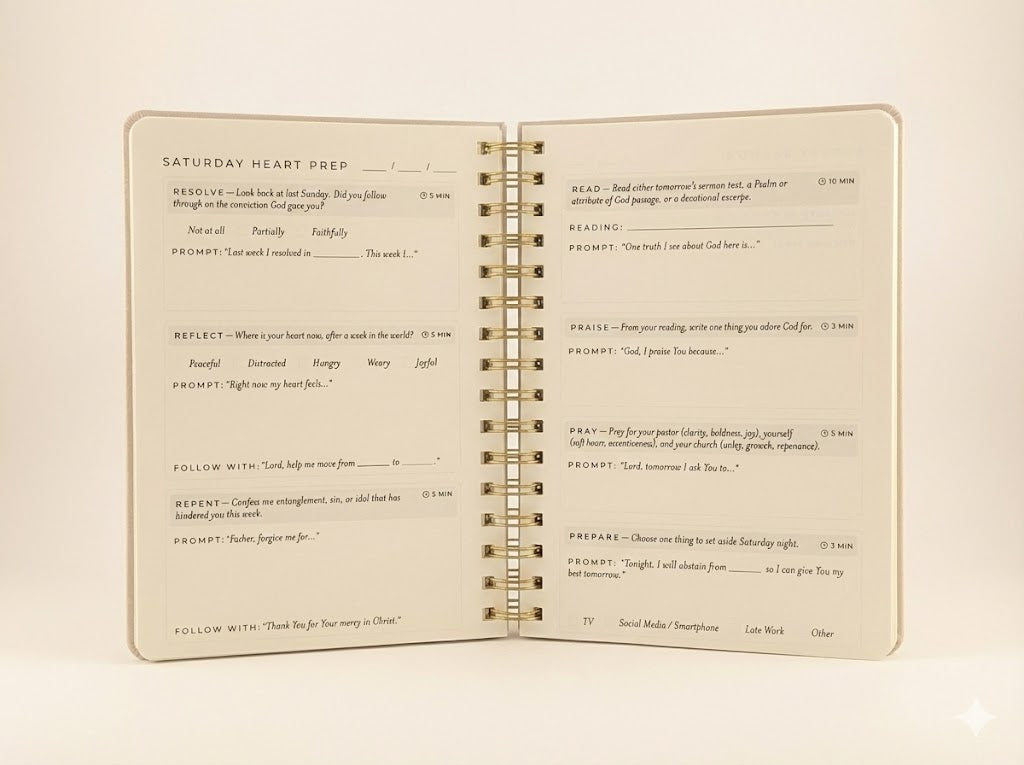 SATURDAY HEART PREP ___ / ___ / ___
RESOLVE — Look back at last Sunday. Did you follow
through on the conviction God gace you?
5 MIN
Not at all Partially Faithfully
PROMPT: "Last week I resolved in ________. This week I..."
REFLECT — Where is your heart now, after a week in the world?
5 MIN
Peaceful Distracted Hungry Weary Joyful
PROMPT: "Right now my heart feels..."
FOLLOW WITH: "Lord, help me move from ______ to ______."
REPENT — Confess me entanglement, sin, or idol that has
hindered you this week.
5 MIN
PROMPT: "Facher, forgice me for..."
FOLLOW WITH: "Thank You for Your mercy in Christ."
READ — Read either tomorrow's sermon test, a Psalm or
attribute of God passage, or a decotional escerpe.
10 MIN
READING: ____________________
PROMPT: "One truth I see about God here is..."
PRAISE — From your reading, write one thing you adore God for.
3 MIN
PROMPT: "God, I praise You because..."
PRAY — Prey for your pastor (clarity, boldness, joy), yourself
(soft hearr, eccenticeness), and your church (unley, growch, repenance).
5 MIN
PROMPT: "Lord, tomorrow I ask You to..."
PREPARE — Choose one thing to set aside Saturday night.
3 MIN
PROMPT: "Tonight, I will abstain from ______ so I can give You my
best tomorrow."
TV Social Media / Smartphone Late Work Other